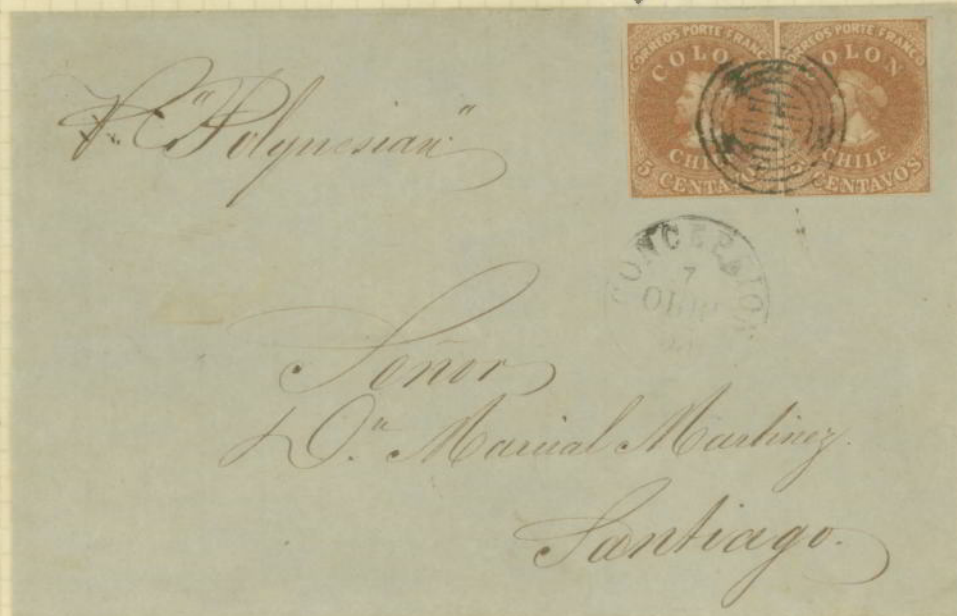 CORREOS PORTE FRANCO
COLON
CHILE
5 CENTAVOS
CORREOS PORTE FRANCO
COLON
CHILE
CENTAVOS
"Polynesian"
CONCEPCION
7
Señor
Dn. Marcial Martinez.
Santiago.